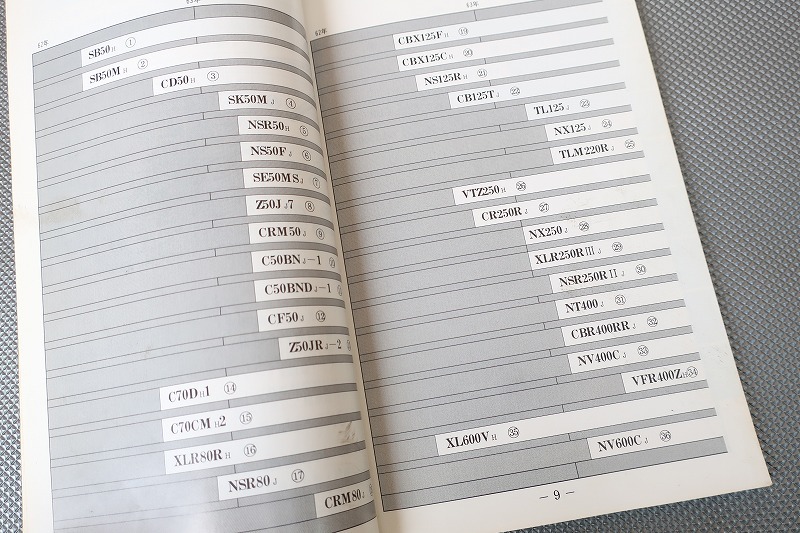 62年
63年
SB50H ①
SB50MH ②
CD50H ③
SK50MJ ④
NSR50H ⑤
NS50FJ ⑥
SE50MSJ ⑦
Z50JJ7 ⑧
CRM50J ⑨
C50BNJ−1 ⑩
C50BNDJ−1
CF50J ⑫
Z50JRJ−2
C70DH1 ⑭
C70CMH2 ⑮
XLR80RH ⑯
NSR80J ⑰
CRM80J
62年
63年
CBX125FH ⑲
CBX125CH ⑳
NS125RH ㉑
CB125TJ ㉒
TL125J ㉓
NX125J ㉔
TLM220RJ ㉕
VTZ250H ㉖
CR250RJ ㉗
NX250J ㉘
XLR250RIIIJ ㉙
NSR250RIIJ ㉚
NT400J ㉛
CBR400RRJ ㉜
NV400CJ ㉝
VFR400ZH ㉞
XL600VH ㉟
NV600CJ ㊱
− 9 −